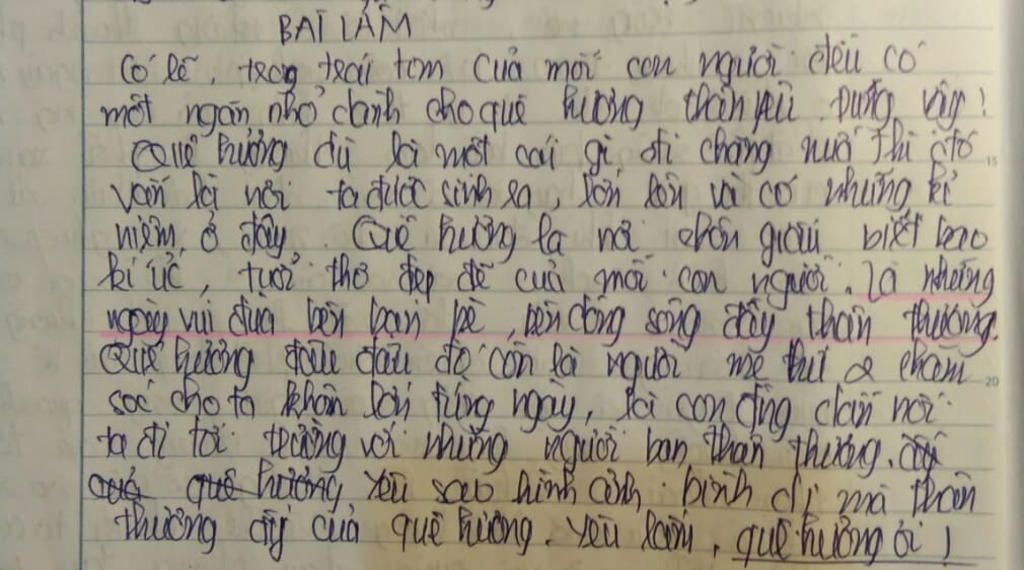 BÀI LÀM
Có lẽ, trong trái tim của mỗi con người đều có
một ngăn nhỏ dành cho quê hương thân yêu. Đúng vậy!
Quê hương dù là một cái gì đi chăng nữa thì đó
vẫn là nơi ta được sinh ra, lớn lên và có những kỉ
niệm ở đây. Quê hương là nơi chôn giấu biết bao
kí ức, tuổi thơ đẹp đẽ của mỗi con người. Là những
ngày vui đùa bên bạn bè, bên dòng sông đầy thân thương.
Quê hương đâu đâu đó còn là người mẹ chăm
sóc cho ta khôn lớn từng ngày, là con đường dẫn nơi
ta đi tới trường với những người bạn thân thương.
quê hương yêu sao hình ảnh bình dị mà thân
thương ấy của quê hương. Yêu lắm, quê hương ơi!